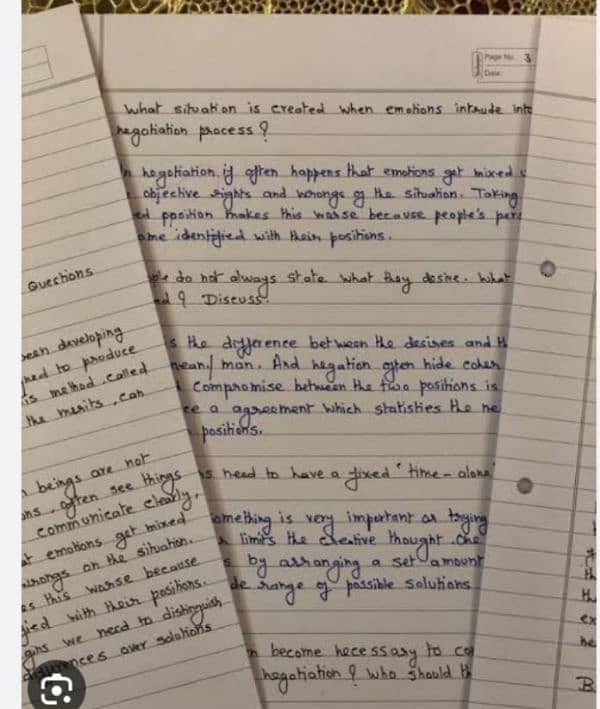 Page No. 3
Date:
What situation is created when emotions intrude into
negotiation process ?
In negotiation it often happens that emotions get mixed
objective rights and wrongs of the situation. Taking
position makes this worse because people's pers
ome identified with their positions.
ple do not always state what they desire. What
ed ? Discuss.
s the difference between the desires and th
mean/ man. And negation often hide coher
Compromise between the two positions is
ee a agreement which statisties the ne
positions.
s need to have a fixed "time - alone"
omething is very important as trying
limits the creative thought. One
s by arranging a set amount
de range of possible solutions
n become necessary to co
negotiation ? Who should th
Questions
been developing
ned to produce
is method, called
the merits, can
beings are not
ons, often see things
communicate clearly,
at emotions get mixed
wrongs on the situation.
es this worse because
fied with their positions.
gins we need to distinguish
differences over solutions
th
th
ex
he
B